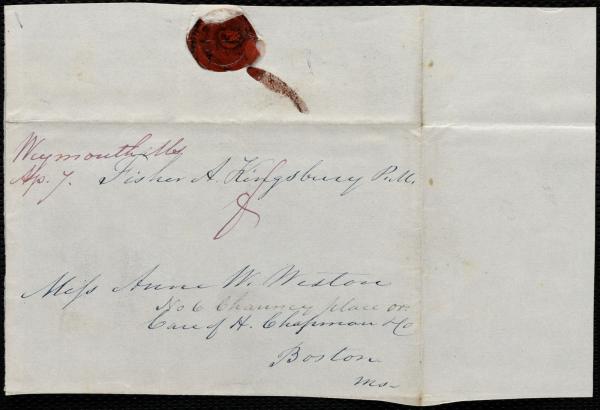 Weymouth Ms
Ap. 7. Fisher A. Kingsbury P.M.
Miss Anne W. Weston
No 6 Chauncy place or
Care of H. Chapman & Co
Boston
Ms-